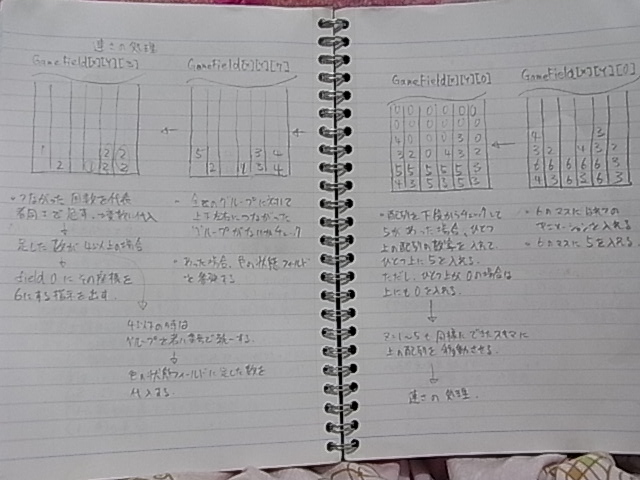 連さの処理
GameField[x][y][3]
GameField[x][y][7]
1 2 2
2 1 2 2
5 3 4
2 1 3 4
・つながった回数を代表
足した数が4以上の場合
field 0 にその座標を
6にする指示を出す。
4以下の時は
グループを若い番号で統一する。
色の状態フィールドに足した数を
代入する。
・全てのグループに対して
上下左右につながった
グループがないかチェック
・あった場合、色の状態フィールド
GameField[x][y][0]
GameField[x][y][0]
0 0 0 0 0 0
0 0 0 0 0 0
4 0 0 0 3 0
3 2 0 4 3 2
5 5 5 5 5 3
4 3 5 5 5 3
3
4
3 2 4 3 2
6 6 6 6 6 3
4 3 6 6 6 3
・配列を下段からチェックして
5があった場合、ひとつ
上の配列の数字を入れて
ひとつ上に5を入れる。
ただし、ひとつ上が0の場合は
上にも0を入れる。
z=1〜5も同様にできたスキマに
上の配列を移動させる。
連さの処理。
・6のマスに
を入れる
・6のマスに5を入れる。